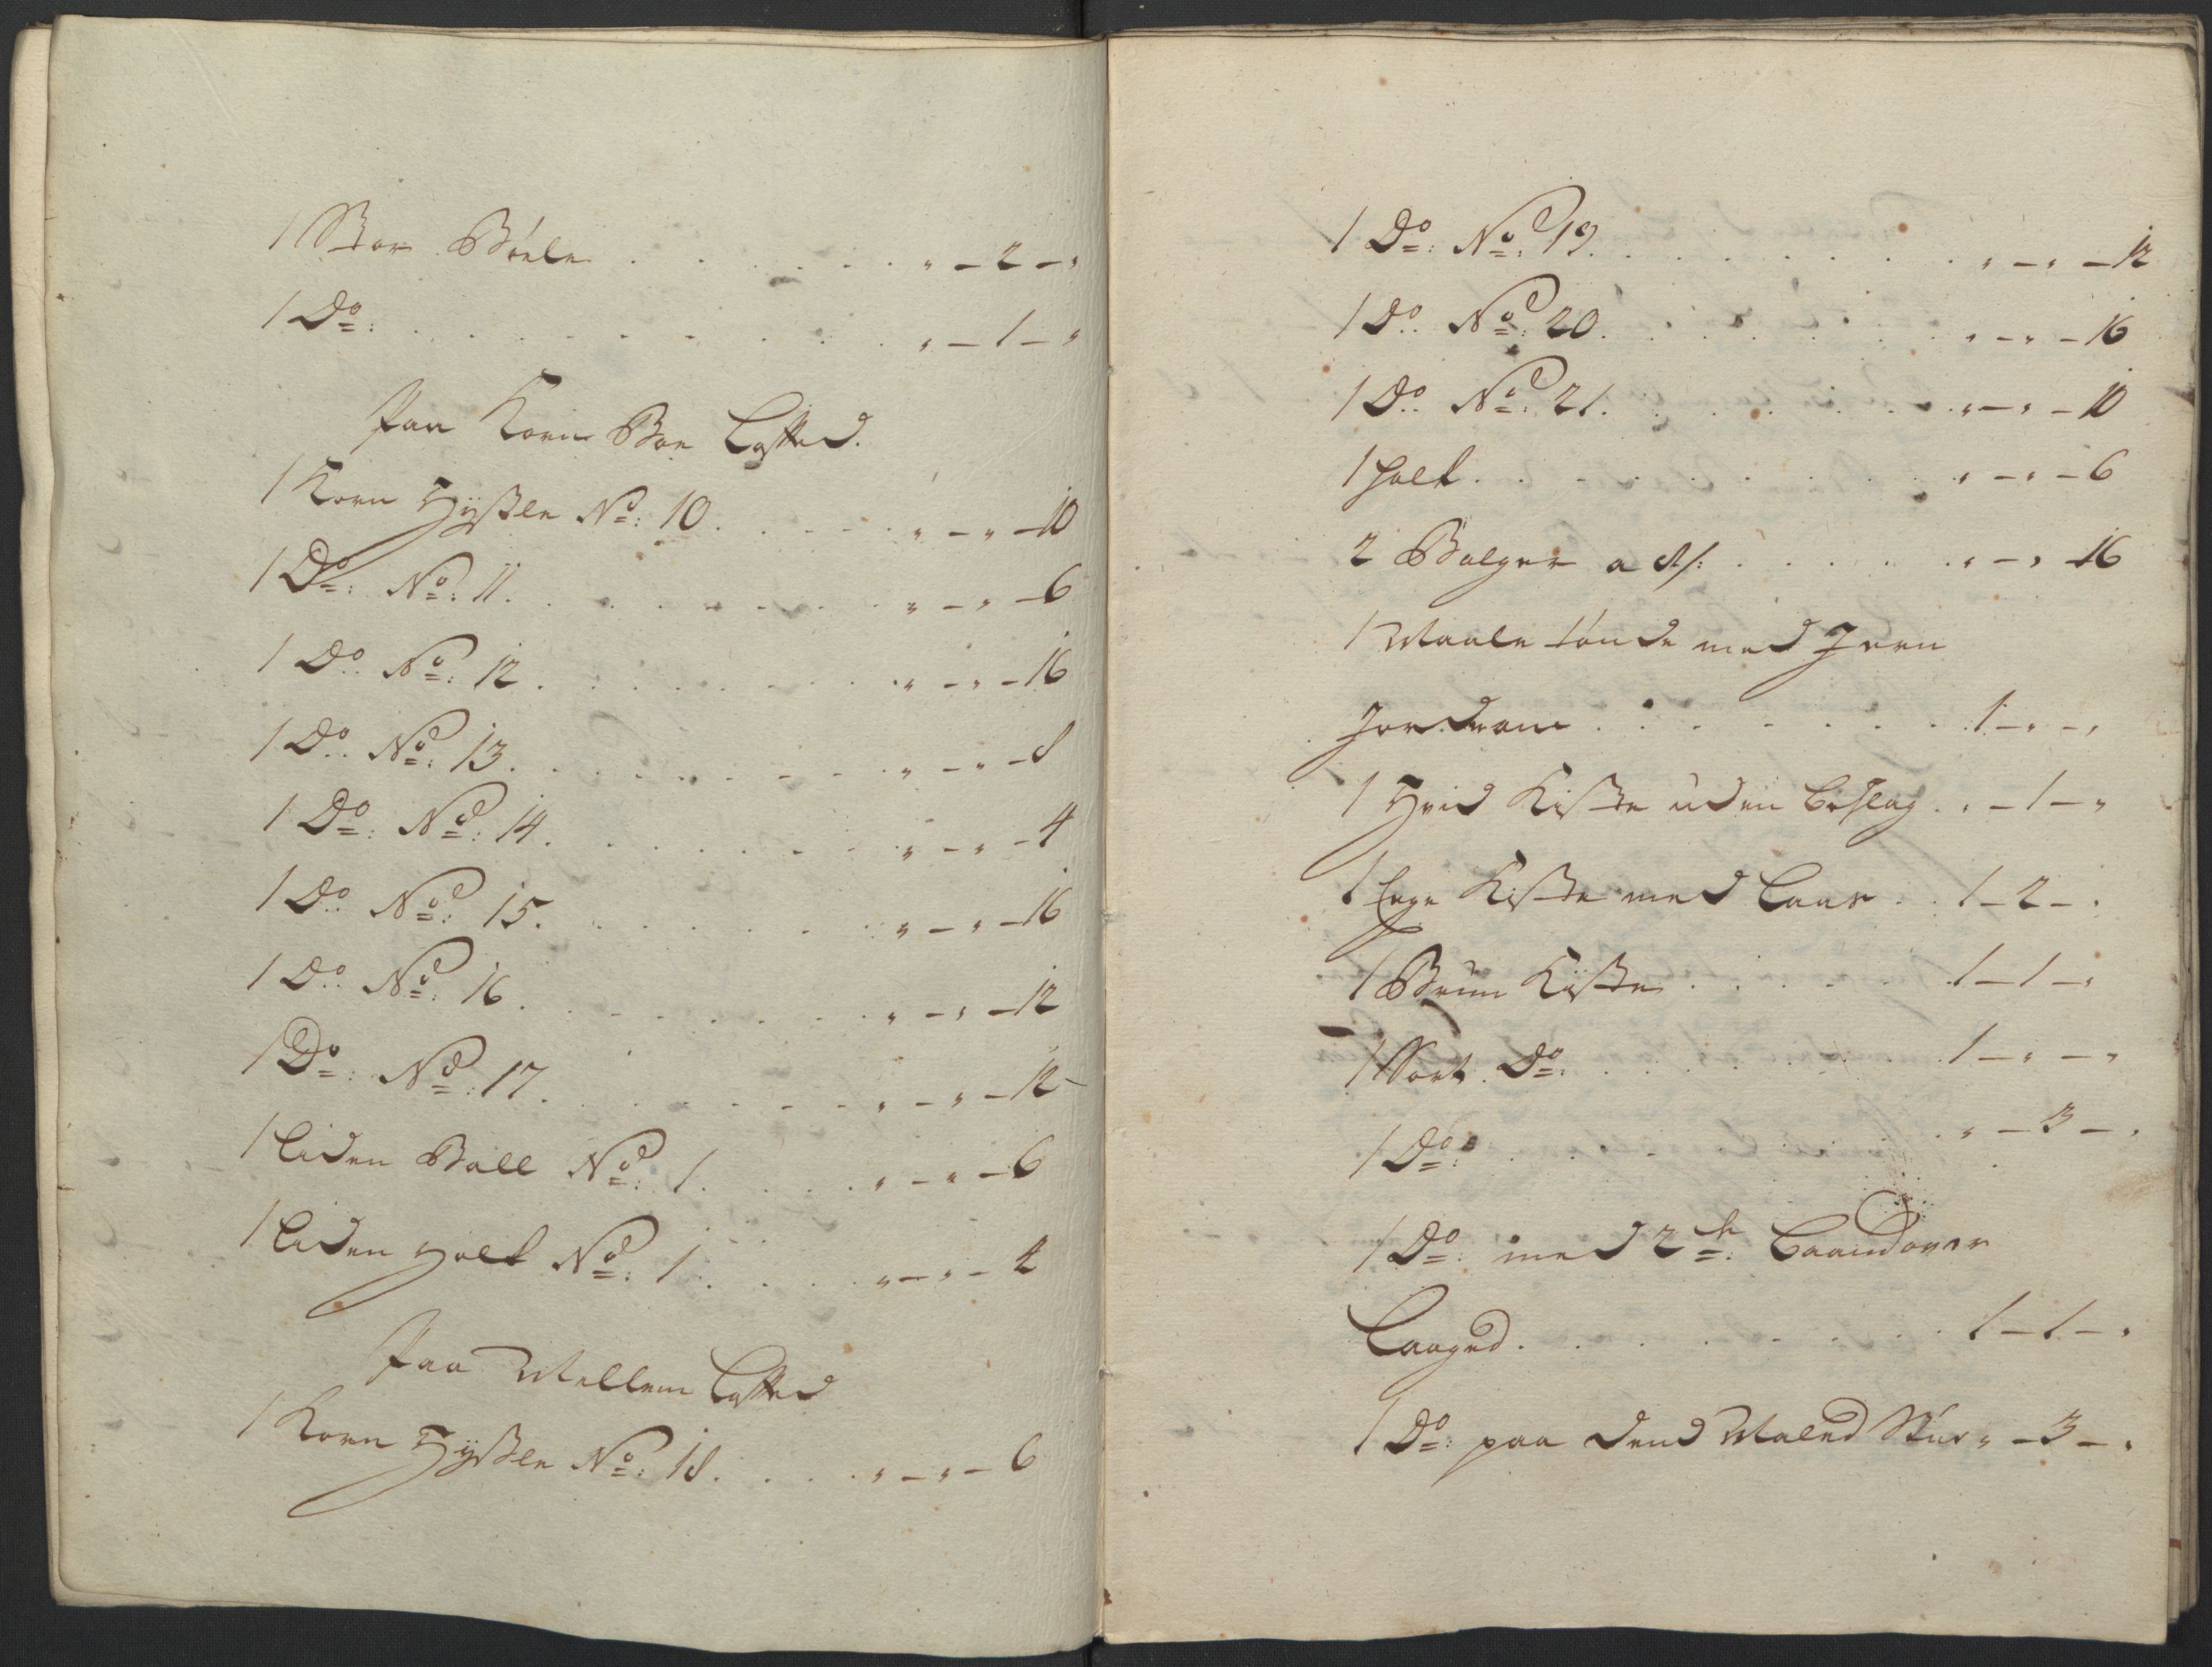 1 Stor Bøele . . . . . . . „ – 2 – „
1 Do: . . . . . . . . . „ – 1 – „
Paa Korn Boe Lofted.
1 Korn Hyßle No: 10. . . . . „ – „ – 10
1 Do: No: 11. . . . . . . . „ – „ – 6
1 Do: No: 12. . . . . . . . „ – „ – 16
1 Do: No: 13. . . . . . . . „ – „ – 8
1 Do: No: 14. . . . . . . . „ – „ – 4
1 Do: No: 15. . . . . . . . „ – „ – 16
1 Do: No: 16. . . . . . . . „ – „ – 12
1 Do: No: 17. . . . . . . . „ – „ – 12 –
1 Liden Ball No: 1. . . . „ – „ – 6
1 Liden Holk No: 1. . . . „ – „ – 4
Paa Mellem Lofted
1 Korn Hyßle No: 18. . . . „ – „ – 6
1 Do: No: 19. . . . . . . . „ – „ – 12
1 Do: No: 20. . . . . . . . „ – „ – 16
1 Do: No: 21. . . . . . . . „ – „ – 10
1 Holk. . . . . . . . . „ – „ – 6
2 Balger a 8 s: . . . . . „ – „ 16
1 Maale tønde med Jern
. . . . . . . 1 – „ – „
1 Hvid Kiste uden beslag . „ – 1 – „
1 Eege Kiste med Laas . . 1 – 2 – „
1 Brun Kiste . . . . . 1 – 1 – „
1 Sort Do: . . . . . . 1 – „ – „
1 Do: . . . . . . . . „ – 3 – „
1 Do: med 2de: Baand over
Laaged . . . . . . . . 1 – 1 – „
1 Do: paa dend Maled Stue „ – 3 – „